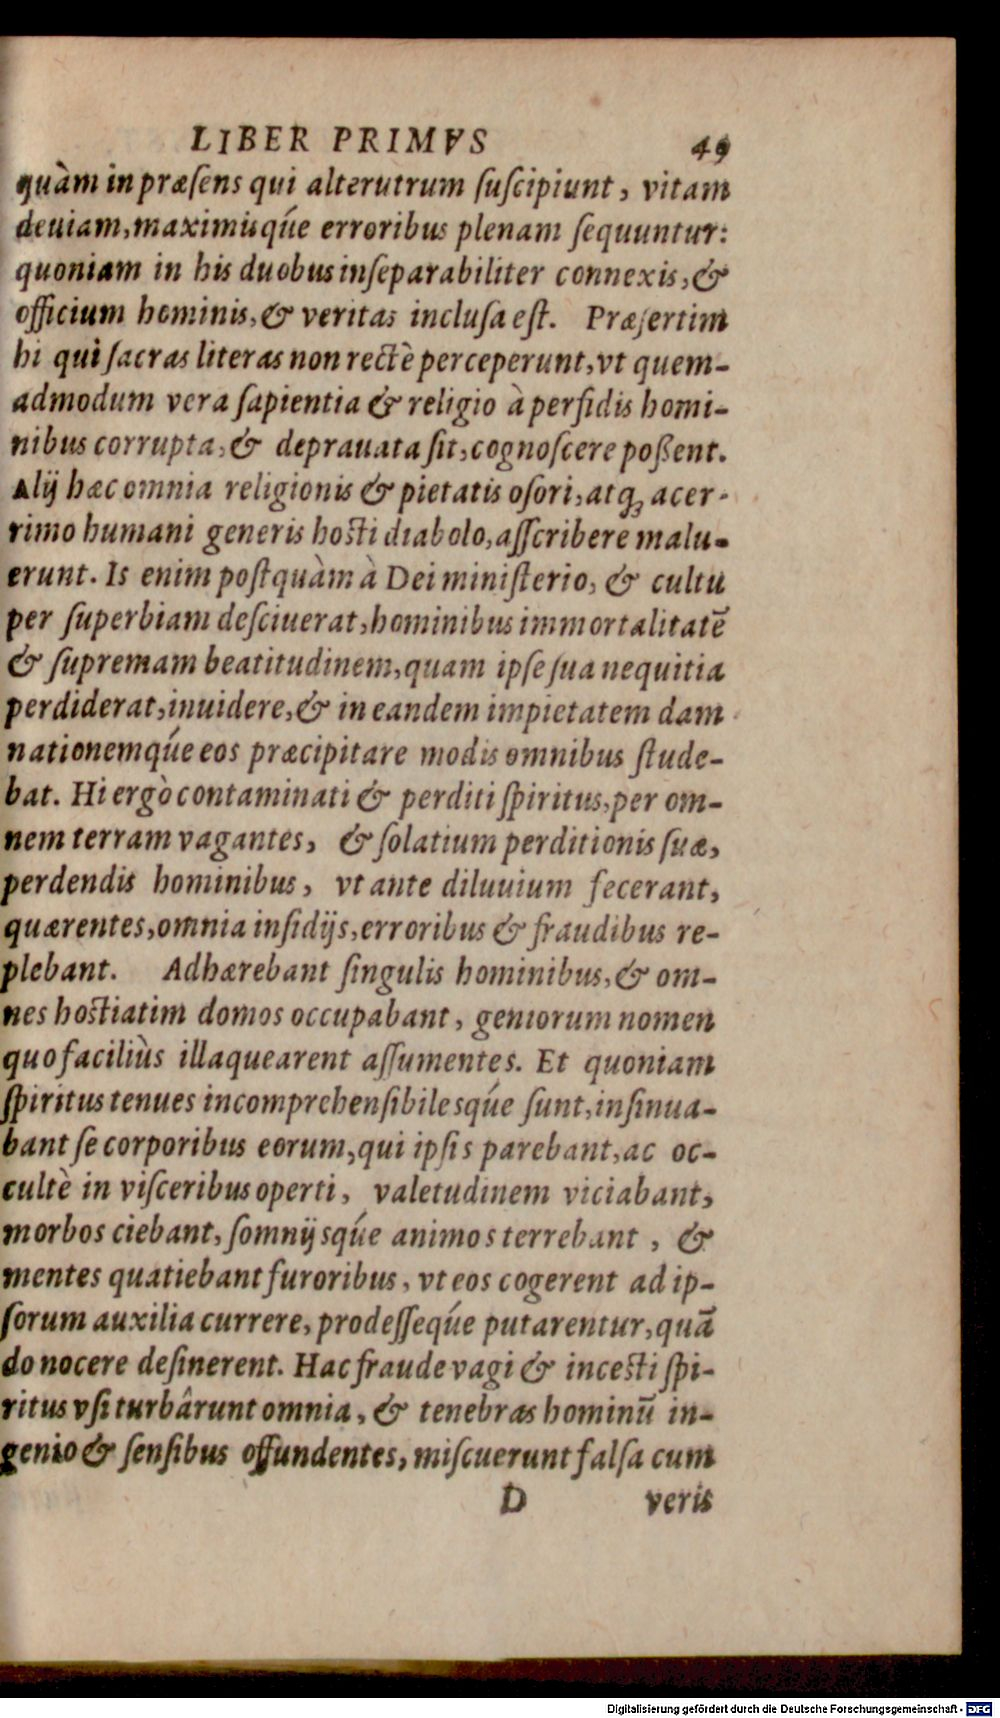 LIBER PRIMVS 49
quàm in præſens qui alterutrum ſuſcipiunt, vitam
deuiam, maximisq́ue erroribus plenam ſequuntur:
quoniam in his duobus inſeparabiliter connexis, &
officium hominis, & veritas incluſa eſt. Præſertim
hi qui ſacras literas non rectè perceperunt, vt quem-
admodum vera ſapientia & religio à perfidis homi-
nibus corrupta, & deprauata ſit, cognoſcere poßent.
Alij hæc omnia religionis & pietatis oſori, atq; acer-
rimo humani generis hoſti diabolo, aſſcribere malu-
erunt. Is enim poſtquàm à Dei miniſterio, & cultu
per ſuperbiam deſciuerat, hominibus immortalitatē
& ſupremam beatitudinem, quam ipſe ſua nequitia
perdiderat, inuidere, & in eandem impietatem dam
nationemq́ue eos præcipitare modis omnibus ſtude-
bat. Hi ergò contaminati & perditi ſpiritus, per om-
nem terram vagantes, & ſolatium perditionis ſuæ,
perdendis hominibus, vt ante diluuium fecerant,
quærentes, omnia inſidijs, erroribus & fraudibus re-
plebant. Adhærebant ſingulis hominibus, & om-
nes hoſtiatim domos occupabant, geniorum nomen
quo faciliùs illaquearent aſſumentes. Et quoniam
ſpiritus tenues incomprehenſibilesq́ue ſunt, inſinua-
bant ſe corporibus eorum, qui ipſis parebant, ac oc-
cultè in viſceribus operti, valetudinem viciabant,
morbos ciebant, ſomnijsq́ue animos terrebant, &
mentes quatiebant furoribus, vt eos cogerent ad ip-
ſorum auxilia currere, prodeſſeq́ue putarentur, quā
do nocere deſinerent. Hac fraude vagi & inceſti ſpi-
ritus vſi turbârunt omnia, & tenebras hominū in-
genio & ſenſibus offundentes, miſcuerunt falſa cum
D veris
Digitalisierung gefördert durch die Deutsche Forschungsgemeinschaft - DFG